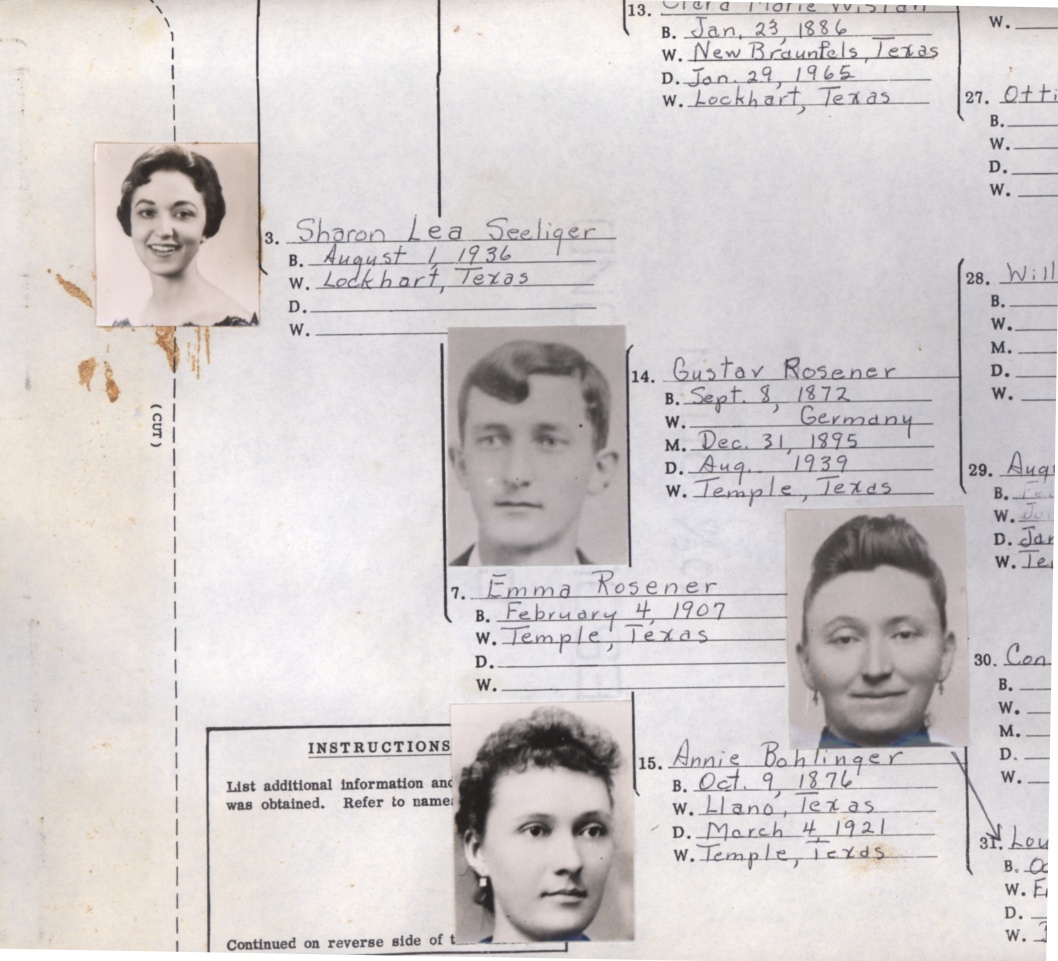 13. Clara Marie Wislan
B. Jan. 23, 1886
W. New Braunfels, Texas
D. Jan. 29, 1965
W. Lockhart, Texas
W.
27. Otti
B.
W.
D.
W.
3. Sharon Lea Seeliger
B. August 1, 1936
W. Lockhart, Texas
D.
W.
28. Will
B.
W.
M.
D.
W.
14. Gustav Rosener
B. Sept. 8, 1872
W. Germany
M. Dec. 31, 1895
D. Aug. 1939
W. Temple, Texas
(CUT)
29. Augu
B. Fe
W.
D. Jan
W. Te
7. Emma Rosener
B. February 4, 1907
W. Temple, Texas
D.
W.
30. Con
B.
W.
M.
D.
W.
INSTRUCTIONS
List additional information and
was obtained. Refer to name
Continued on reverse side of t
15. Annie Bohlinger
B. Oct. 9, 1876
W. Llano, Texas
D. March 4, 1921
W. Temple, Texas
31. Lou
B. Oc
W.
D.
W.